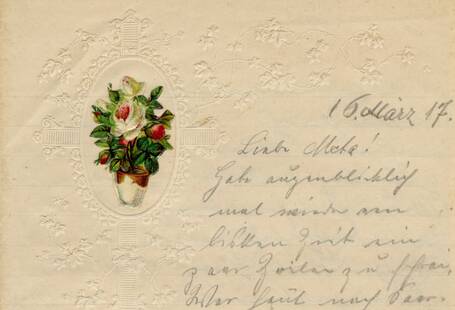 16. März 17.
Liebe Meta!
Habe augenblicklich
mal wieder ein
bißken Zeit ein
paar Zeilen zu schrei,
War heut nach Saar-